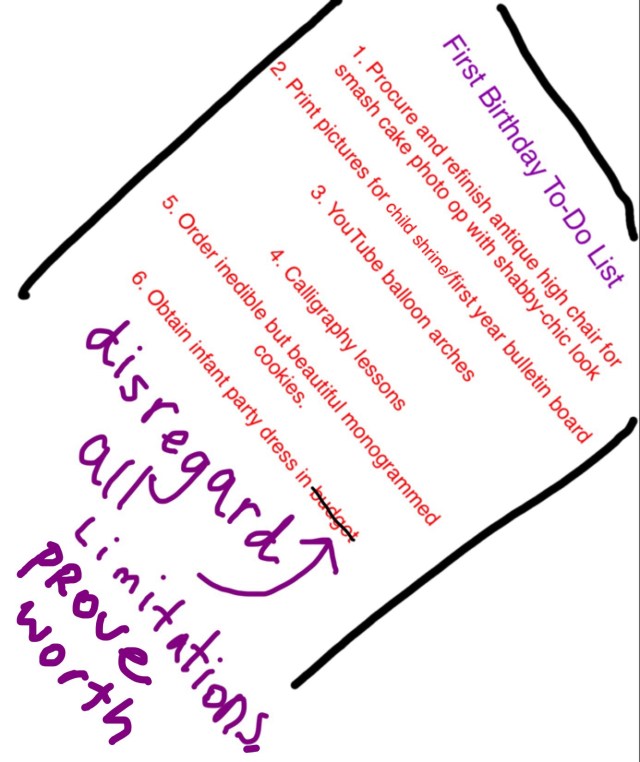 First Birthday To-Do List
1. Procure and refinish antique high chair for
smash cake photo op with shabby-chic look
2. Print pictures for child shrine/first year bulletin board
3. YouTube balloon arches
4. Calligraphy lessons
5. Order inedible but beautiful monogrammed
cookies.
6. Obtain infant party dress in budget
disregard
all
Limitations.
PROVE
worth